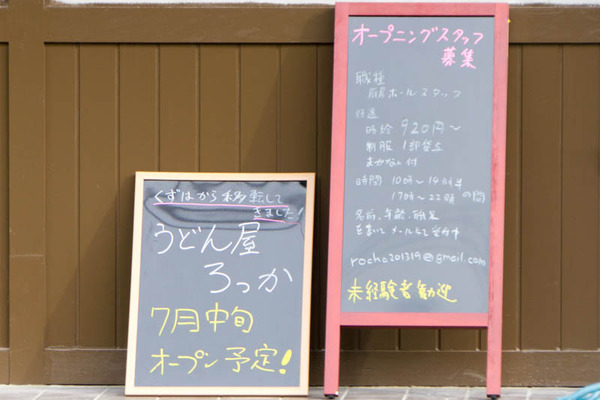 くずはから移転して
きました!
うどん屋
ろっか
7月中旬
オープン予定!
オープニングスタッフ
募集
職種
厨房ホールスタッフ
待遇
時給 920円〜
制服 1部貸与
まかない付
時間 10時〜14時半
17時〜22時 の間
名前、年齢、
メールにて受付中
rocha201319@gmail.com
未経験者歓迎